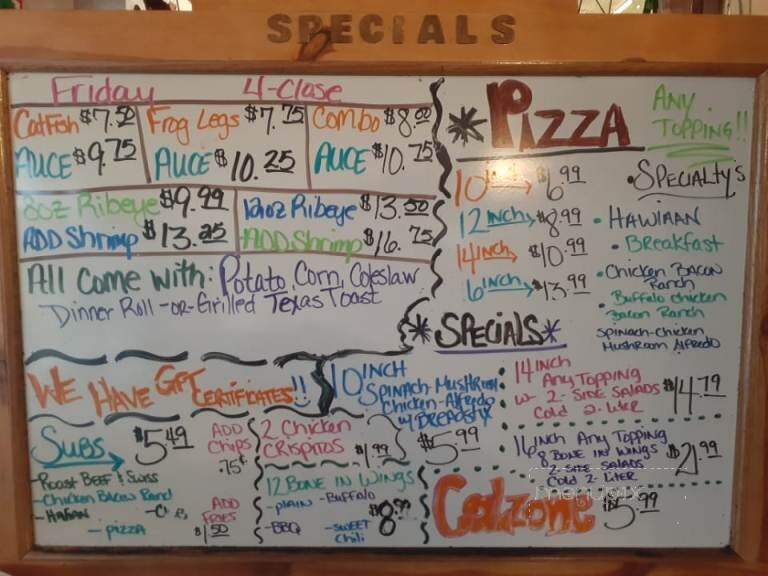 SPECIALS
Friday 4-Close
Catfish $7.50
AUCE $9.75
Frog Legs $7.75
AUCE $10.25
Combo $8.00
AUCE $10.75
8oz Ribeye $9.99
ADD Shrimp $13.25
12oz Ribeye $13.50
ADD Shrimp $16.75
All Come with: Potato, Corn, Coleslaw
Dinner Roll -or- Grilled Texas Toast
WE HAVE GIFT CERTIFICATES!!
SUBS $5.49
ADD Chips .75¢
-Roast BEEF & Swiss
-Chicken Bacon Ranch
-Italian
-PIZZA
ADD FRIES $1.50
2 Chicken CRISPITOS $1.99
12 BONE IN WINGS
-PLAIN -BUFFALO
-BBQ -SWEET Chili
$8.99
*PIZZA
ANY TOPPING!!
10 inch → $6.99
12 inch → $8.99
14 inch → $10.99
6 inch → $13.99
• SPECIALTY'S
• HAWIIAN
• BREAKFAST
• Chicken BACON Ranch
• Buffalo chicken Bacon Ranch
SPINACH-Chicken MUSHROOM Alfredo
*SPECIALS*
10 INCH
SPINACH MUSHROOM
Chicken-Alfredo
w/ BREADSTIX
$5.99
14 INCH
Any TOPPING
w- 2- SIDE SALADS
Cold 2-liter
$14.79
16 inch Any TOPPING
8 BONE IN WINGS
2-SIDE SALADS
Cold 2-liter
$21.99
Calzone $5.99